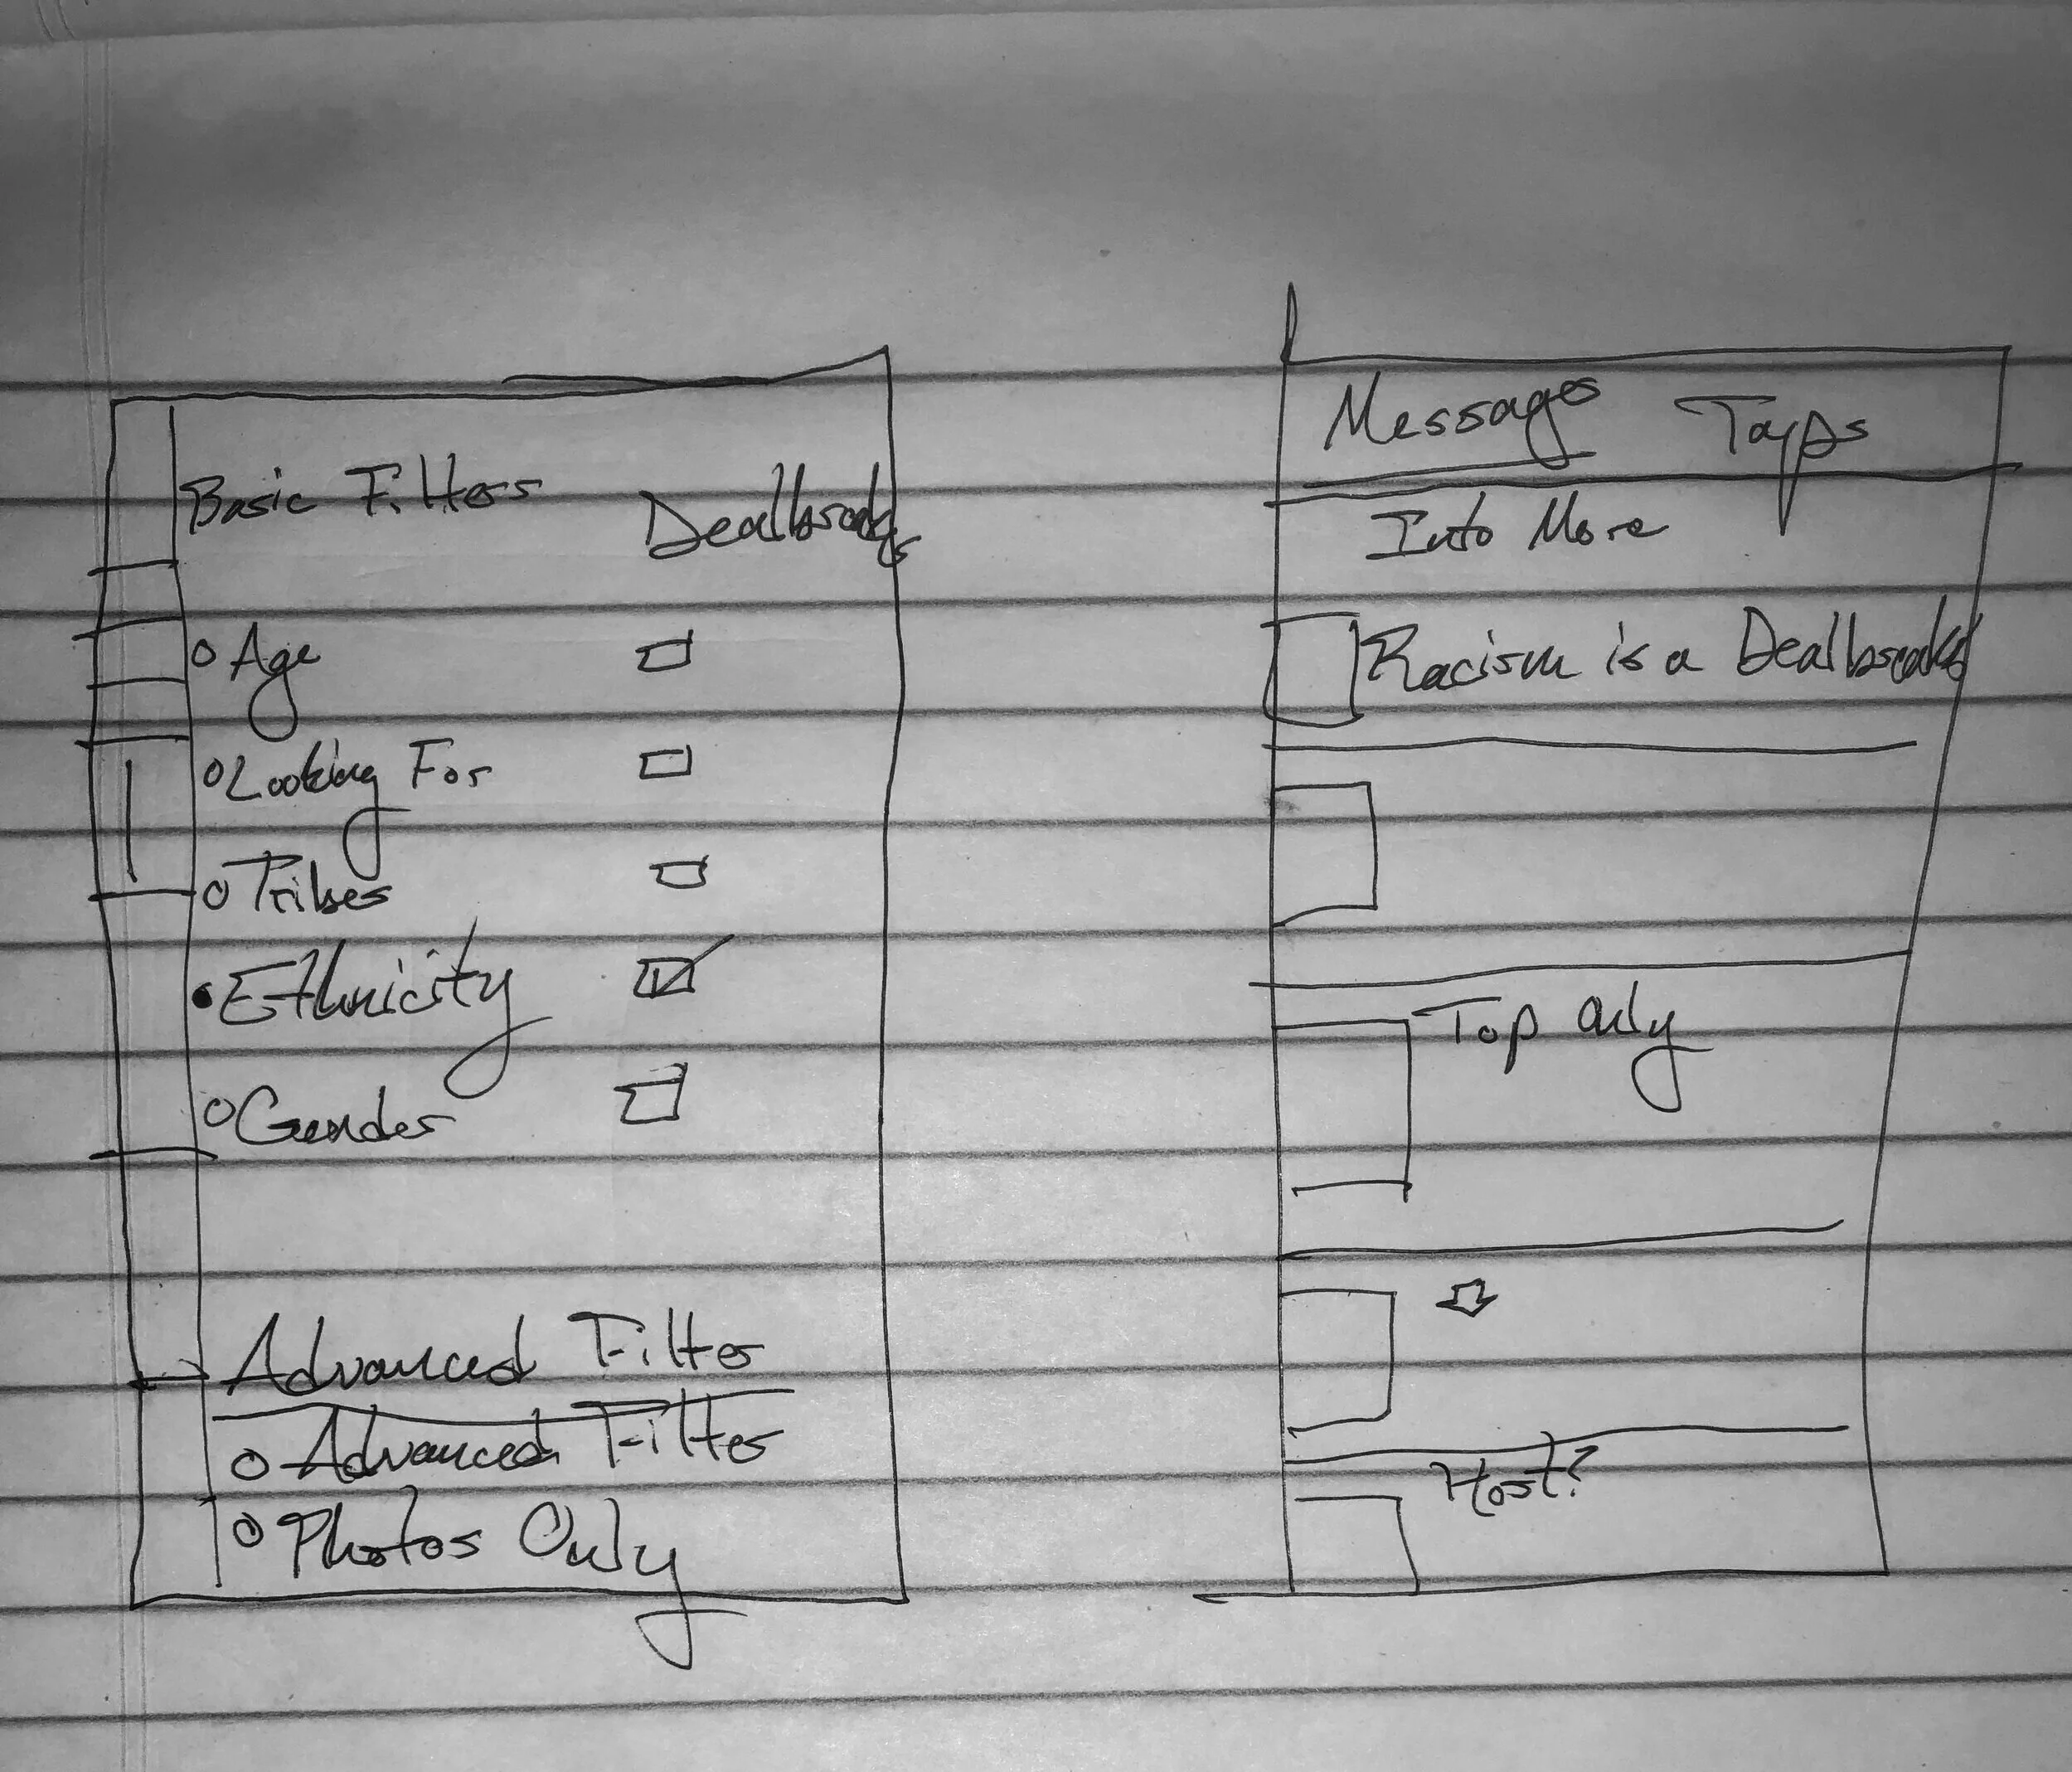 Basic Filters
Dealbreakers
Age
Looking For
Tribes
Ethnicity
Gender
Advanced Filter
Advanced Filter
Photos Only
Messages Taps
Into More
Racism is a Dealbreaker
Top Only
Host?